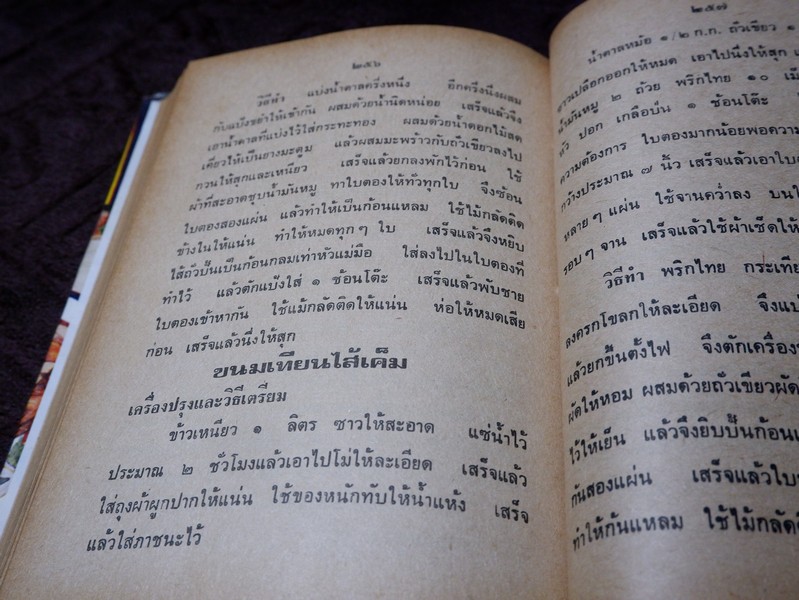 ๒๕๖
วิธีทำ แบ่งน้ำตาลครึ่งหนึ่ง อีกครึ่งนึงผสม
กับแป้งขยำให้เข้ากัน ผสมด้วยน้ำนิดหน่อย เสร็จแล้วจึง
เอาน้ำตาลที่แบ่งไว้ใส่กระทะทอง ผสมด้วยน้ำดอกไม้สด
เคี่ยวให้เป็นยางมะตูม แล้วผสมมะพร้าวกับถั่วเขียวลงไป
กวนให้สุกและเหนียว เสร็จแล้วยกลงพักไว้ก่อน ใช้
ผ้าที่สะอาดชุบน้ำมันหมู ทาใบตองให้ทั่วทุกใบ จึงซ้อน
ใบตองสองแผ่น แล้วทำให้เป็นก้อนแหลม ใช้ไม้กลัดติด
ข้างในให้แน่น ทำให้หมดทุกๆ ใบ เสร็จแล้วจึงหยิบ
ไส้ถั่วปั้นเป็นก้อนกลมเท่าหัวแม่มือ ใส่ลงไปในใบตองที่
ทำไว้ แล้วตักแป้งใส่ ๑ ช้อนโต๊ะ เสร็จแล้วพับชาย
ใบตองเข้าหากัน ใช้แม้กลัดติดให้แน่น ห่อให้หมดเสีย
ก่อน เสร็จแล้วนึ่งให้สุก
ขนมเทียนไส้เค็ม
เครื่องปรุงและวิธีเตรียม
ข้าวเหนียว ๑ ลิตร ซาวให้สะอาด แช่น้ำไว้
ประมาณ ๒ ชั่วโมงแล้วเอาไปโม่ให้ละเอียด เสร็จแล้ว
ใส่ถุงผ้าผูกปากให้แน่น ใช้ของหนักทับให้น้ำแห้ง เสร็จ
แล้วใส่ภาชนะไว้
๒๕๗
น้ำตาลหม้อ ๑/๒ ก.ก. ถั่วเขียว ๑
เปลือกออกให้หมด เอาไปนึ่งให้สุก
น้ำมันหมู ๒ ถ้วย พริกไทย ๑๐
หัว ปอก เกลือป่น ๑ ช้อนโต๊ะ
ความต้องการ ใบตองมากน้อยพอความ
กว้างประมาณ ๗ นิ้ว เสร็จแล้วเอาใบตอง
หลายๆ แผ่น ใช้จานคว่ำลง บนใ
รอบๆ จาน เสร็จแล้วใช้ผ้าเช็ดให้
วิธีทำ พริกไทย กระเทีย
ลงครกโขลกให้ละเอียด จึงแบ
แล้วยกขึ้นตั้งไฟ จึงตักเครื่อง
ผัดให้หอม ผสมด้วยถั่วเขียวผัด
ไว้ให้เย็น แล้วจึงยิบปั้นก้อน
กันสองแผ่น เสร็จแล้วใบ
ทำให้ก้นแหลม ใช้ไม้กลัด